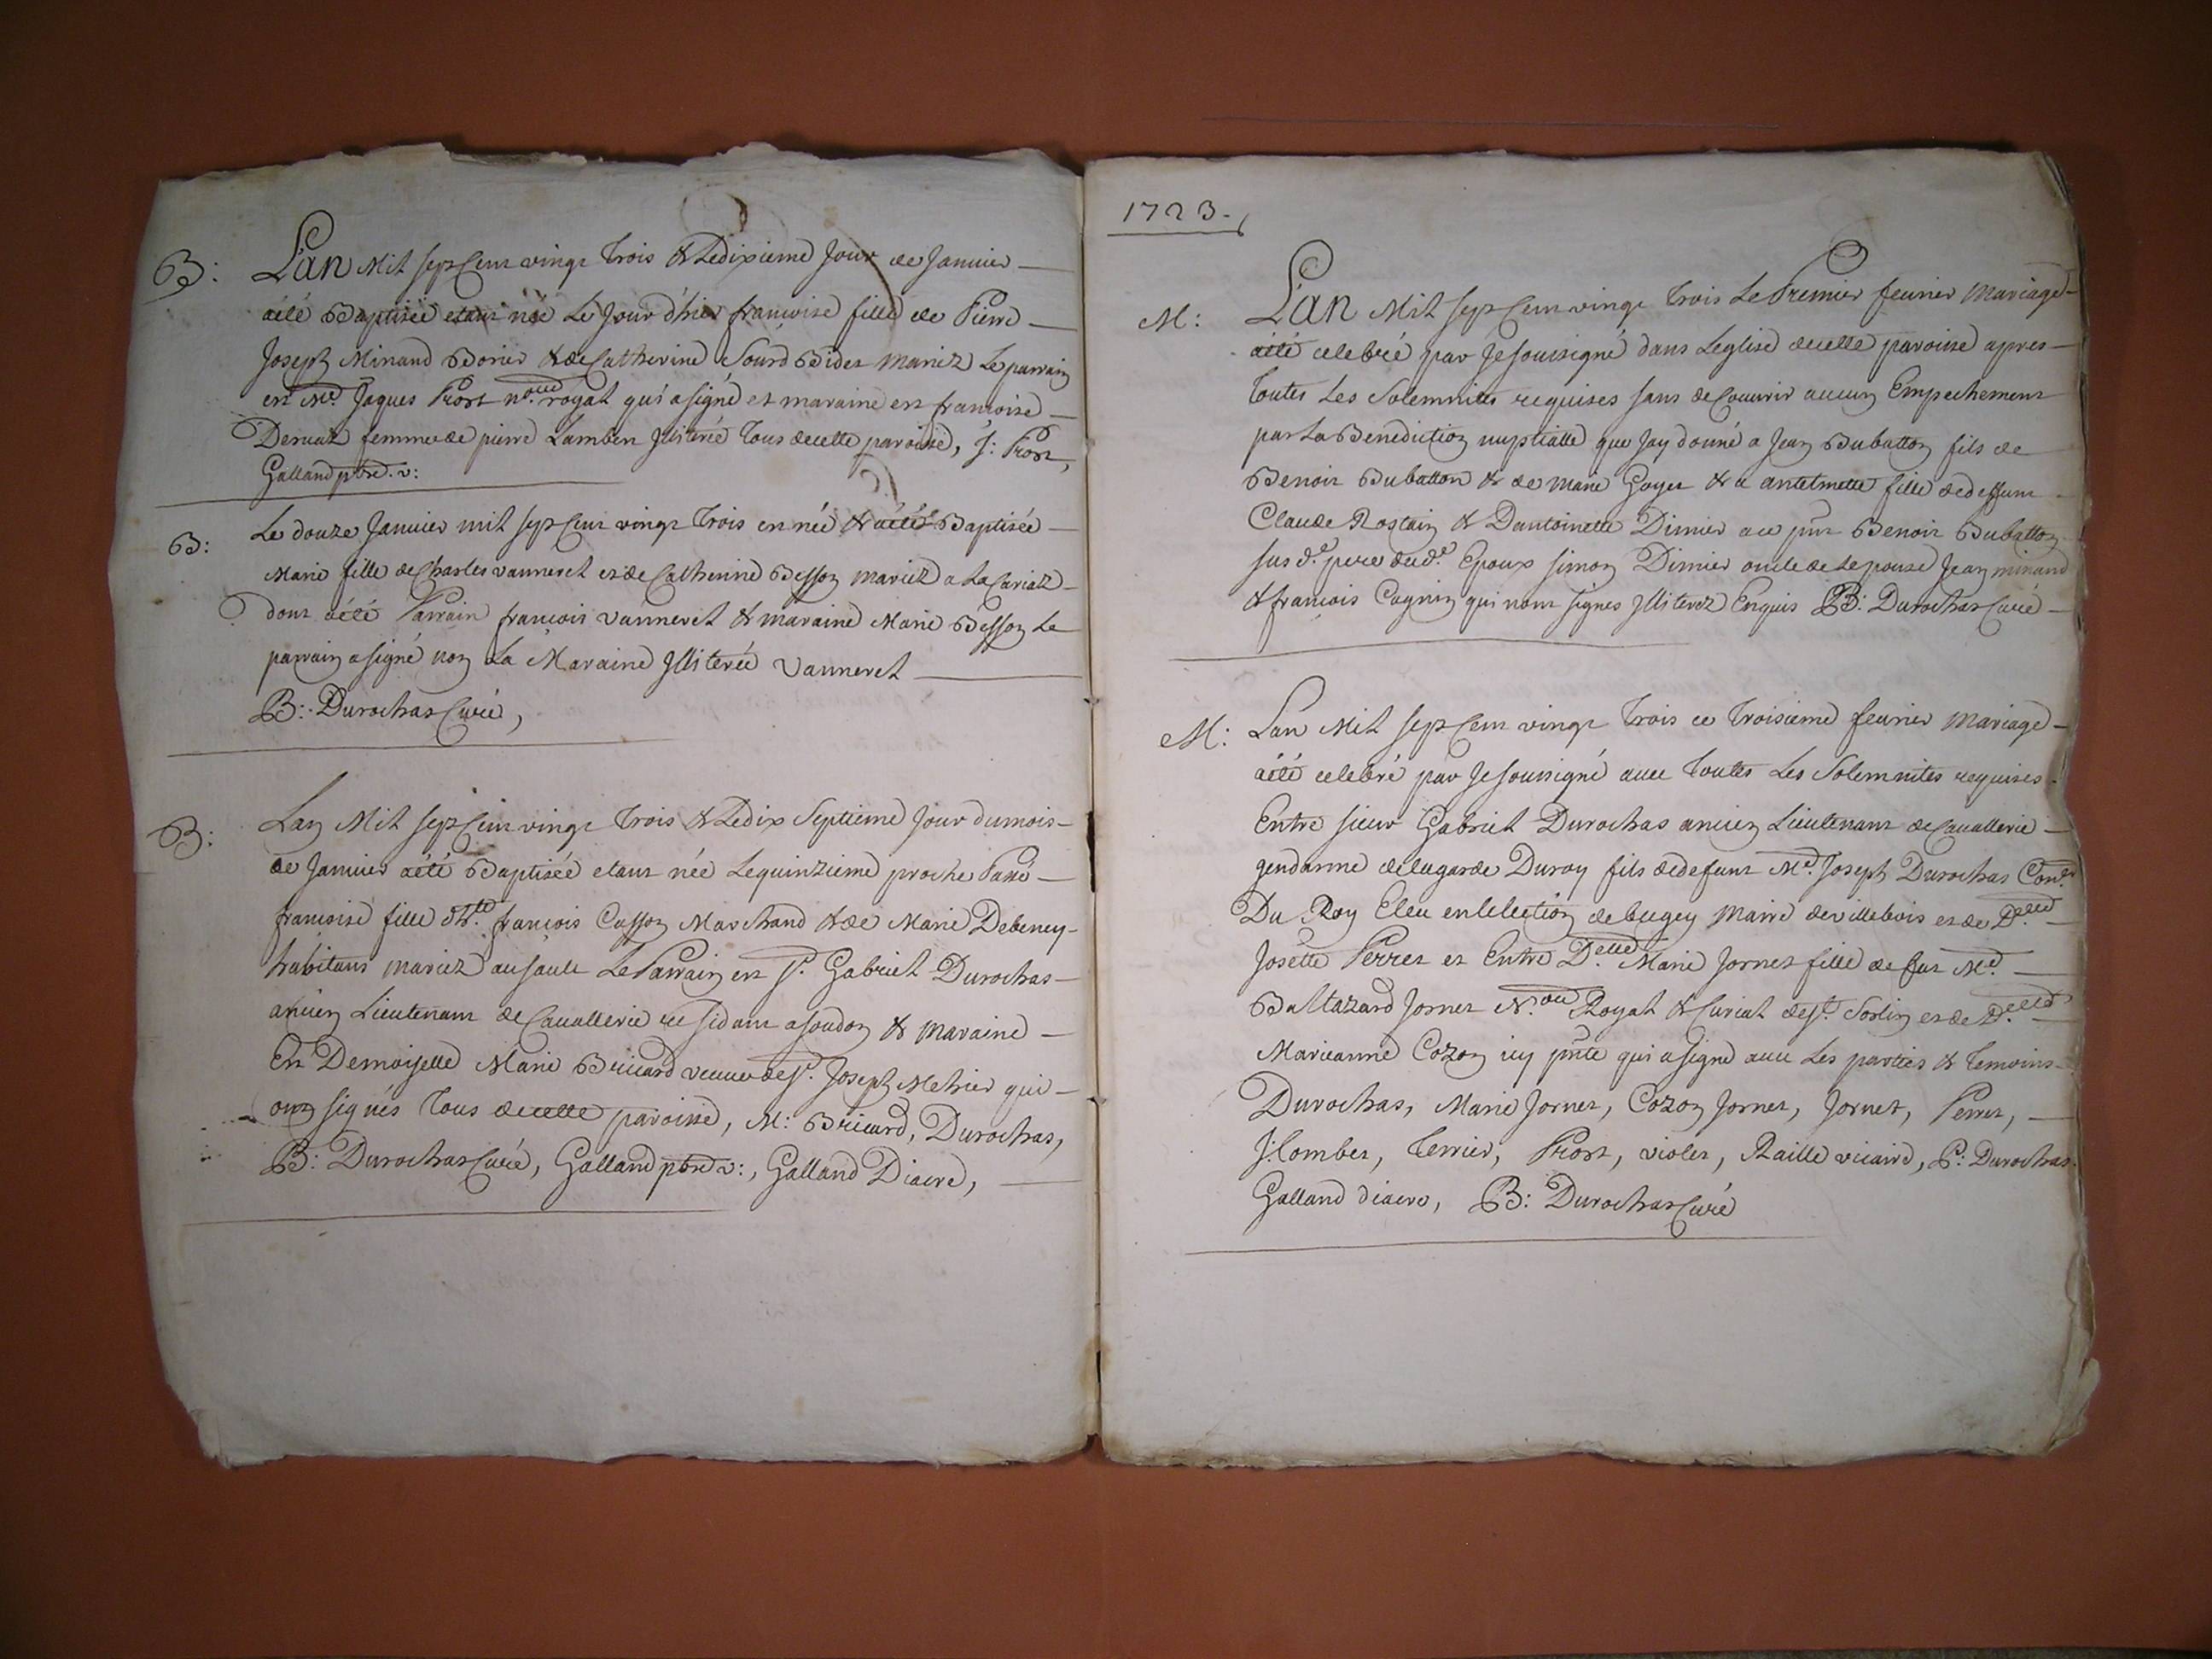 B: L'an Mil sept Cent vingt trois & Le dixieme Jour de Janvier
a été Baptisée etant née Le Jour d'hier francoise fille de Pierre
Joseph Minand Borier & de Catherine Sourd Bider mariez Le parrain
est Me. Jaques Prost no.re royal qui a signé et maraine est francoise
femme de pierre Lambert Illiterée tous de cette paroisse, J: Prost,
Galland ptre. v:
B: Le douze Janvier mil sept Cent vingt trois est née & a été Baptisée
Marie fille de Charles vanneret et de Catherine Besson mariez a La Cariaz
dont a été Parrain francois vanneret & maraine Marie Besson Le
parrain a signé non La Maraine Illiterée Vanneret
B: Durochas Curé,
B: L'an Mil sept Cent vingt trois & Le dix Septieme Jour du mois
de Janvier a été Baptisée etant née Le quinzieme proche Passé
francoise fille d'h.le francois Casson Marchand & de Marie Debeney
habitans mariez au sault Le Parrain est Sr. Gabriel Durochas
ancien Lieutenant de Cauallerie residant a soudon & maraine
Est Demoiselle Marie Bricard veuue de Sr. Joseph Mehier qui
ont signés tous de cette paroisse, M: Bricard, Durochas,
B: Durochas Curé, Galland ptre v:, Galland Diacre,
1723.
M: L'an Mil sept Cent vingt trois Le Premier feurier mariage
a été celebré par Je soussigné dans L'eglise de cette paroisse apres
toutes Les Solemnites requises sans deCouurir aucun Empechement
par La Benediction nuptialle que Jay donné a Jean Dubatton fils de
Benoit Dubatton & de marie Goyet & a antelmette fille de deffunt
Claude Rostain & Dantoinette Dimier a ce pnt Benoit Dubatton
sus d.t pere dud.t Epoux simon Dimier oncle de Lepouse Jean minand
& francois Cagnin qui nont signes Illiterez Enquis B: Durochas Curé
M: L'an Mil sept Cent vingt trois ce troisieme feurier mariage
a été celebré par Je soussigné auec toutes Les Solemnites requises
Entre sieur Gabriel Durochas ancien Lieutenant de Cauallerie
gendarme de la garde Du roy fils de defunt Me. Joseph Durochas Con.er
Du Roy Eleu en l'election de bugey maire de villebois et de D.elle
Josette Perret et Entre D.elle Marie Jornet fille de fut Me.
Baltazard Jornet N.re Royal & Curial de St. Sorlin et de D.elle
Marieanne Cozon icy pnte qui a signé auec Les parties & temoins
Durochas, Marie Jornet, Cozon Jornet, Jornet, Perret,
J: Combet, Terrier, Prost, violet, Raille vicaire, P: Durochas
Galland diacre, B: Durochas Curé